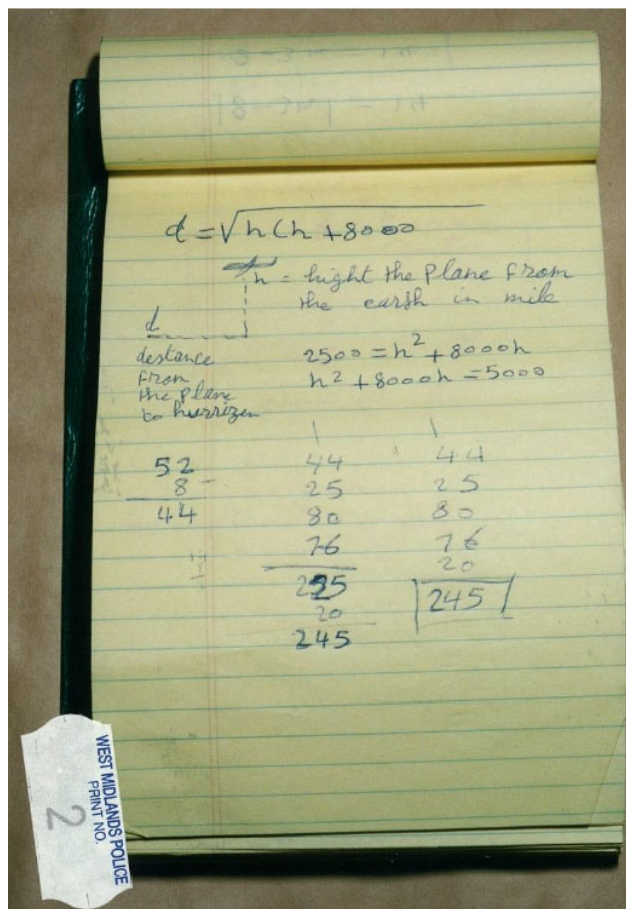 d = √h(h + 8000
h = hight the Plane From
the earth in mile
d
destance
From
the plane
to hurrizen
2500 = h² + 8000h
h² + 8000h = 5000
52
8 -
44
44
25
80
76
225
20
245
44
25
80
76
20
245
WEST MIDLANDS POLICE
PRINT NO.
2